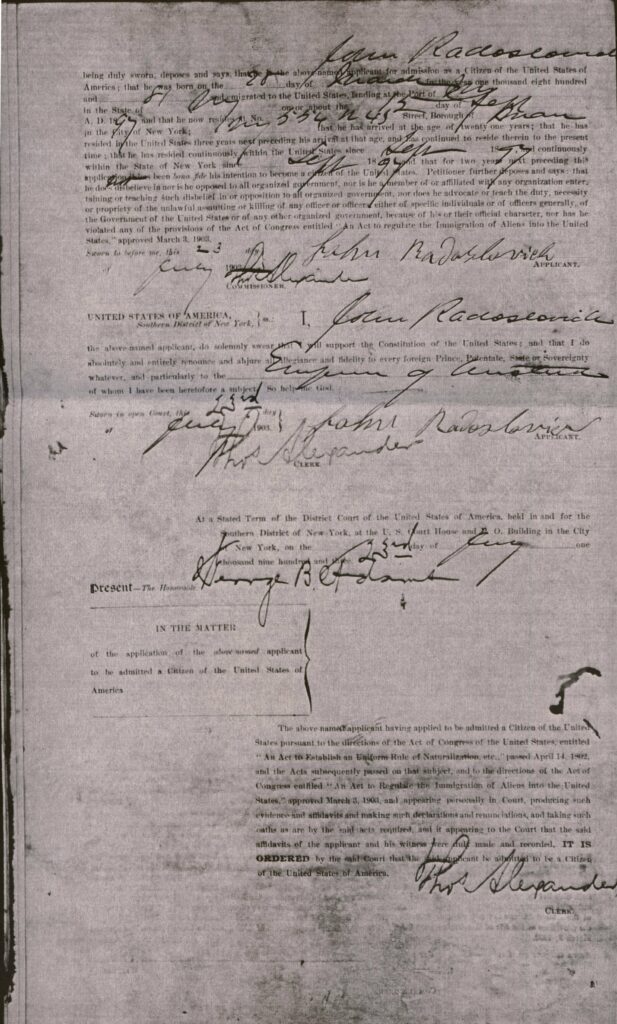 John Radoslovich
being duly sworn, deposes and says, that he is the above named applicant for admission as a Citizen of the United States of
America; that he was born on the 20 day of in the year one thousand eight hundred
and 81 emigrated to the United States, landing at the Port of
in the State of on or about the 15 day of Sept
A. D. 1 97 and that he now resides at No. 554 W 45 Street, Borough of Man
in the City of New York; that he has arrived at the age of twenty one years; that he has
resided in the United States three years next preceding his arrival at that age, and has continued to reside therein to the present
time; that he has resided continuously within the United States since Sept 18 97 and continuously
within the State of New York since Sept 18 97 and that for two years next preceding this
application it has been bona fide his intention to become a citizen of the United States. Petitioner further deposes and says: that
he does not disbelieve in nor is he opposed to all organized government, nor is he a member of or affiliated with any organization enter-
taining or teaching such disbelief in or opposition to all organized government, nor does he advocate or teach the duty, necessity
or propriety of the unlawful assaulting or killing of any officer or officers, either of specific individuals or of officers generally, of
the Government of the United States or of any other organized government, because of his or their official character, nor has he
violated any of the provisions of the Act of Congress entitled "An Act to regulate the Immigration of Aliens into the United
States," approved March 3, 1903.
Sworn to before me, this 23 day
of July 1903. John Radoslovich
APPLICANT.
Thos Alexander
COMMISSIONER.
UNITED STATES OF AMERICA, ss.: I, John Radoslovich
Southern District of New York,
the above-named applicant, do solemnly swear that I will support the Constitution of the United States; and that I do
absolutely and entirely renounce and abjure all allegiance and fidelity to every foreign Prince, Potentate, State or Sovereignty
whatever, and particularly to the Emperor of Austria
of whom I have been heretofore a subject. So help me God.
Sworn in open Court, this 23rd day
of July 1903. John Radoslovich
APPLICANT.
Thos Alexander
CLERK.
At a Stated Term of the District Court of the United States of America, held in and for the
Southern District of New York, at the U. S. Court House and P. O. Building in the City
of New York, on the 23rd day of July one
thousand nine hundred and three
Present—The Honorable George B. Adams
IN THE MATTER
of the application of the above-named applicant
to be admitted a Citizen of the United States of
America
The above named applicant having applied to be admitted a Citizen of the United
States pursuant to the directions of the Act of Congress of the United States, entitled
"An Act to Establish an Uniform Rule of Naturalization, etc.," passed April 14, 1802,
and the Acts subsequently passed on that subject, and to the directions of the Act of
Congress entitled "An Act to Regulate the Immigration of Aliens into the United
States," approved March 3, 1903, and appearing personally in Court, producing such
evidence and affidavits and making such declarations and renunciations, and taking such
oaths as are by the said acts required, and it appearing to the Court that the said
affidavits of the applicant and his witness were duly made and recorded, IT IS
ORDERED by the said Court that the said applicant be admitted to be a Citizen
of the United States of America.
Thos Alexander
CLERK.